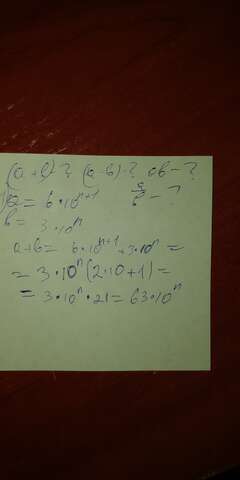 (a+b)-? (a-b)-? ab-?
a = 6·10ⁿ⁺¹ a/b - ?
b = 3·10ⁿ
a+b = 6·10ⁿ⁺¹ + 3·10ⁿ =
= 3·10ⁿ(2·10+1) =
= 3·10ⁿ·21 = 63·10ⁿ